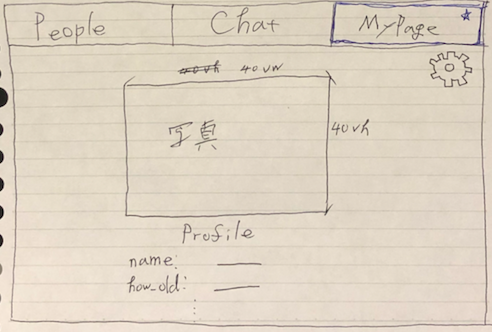 People Chat MyPage
40vh 40vw
写真
40vh
Profile
name:
how_old: